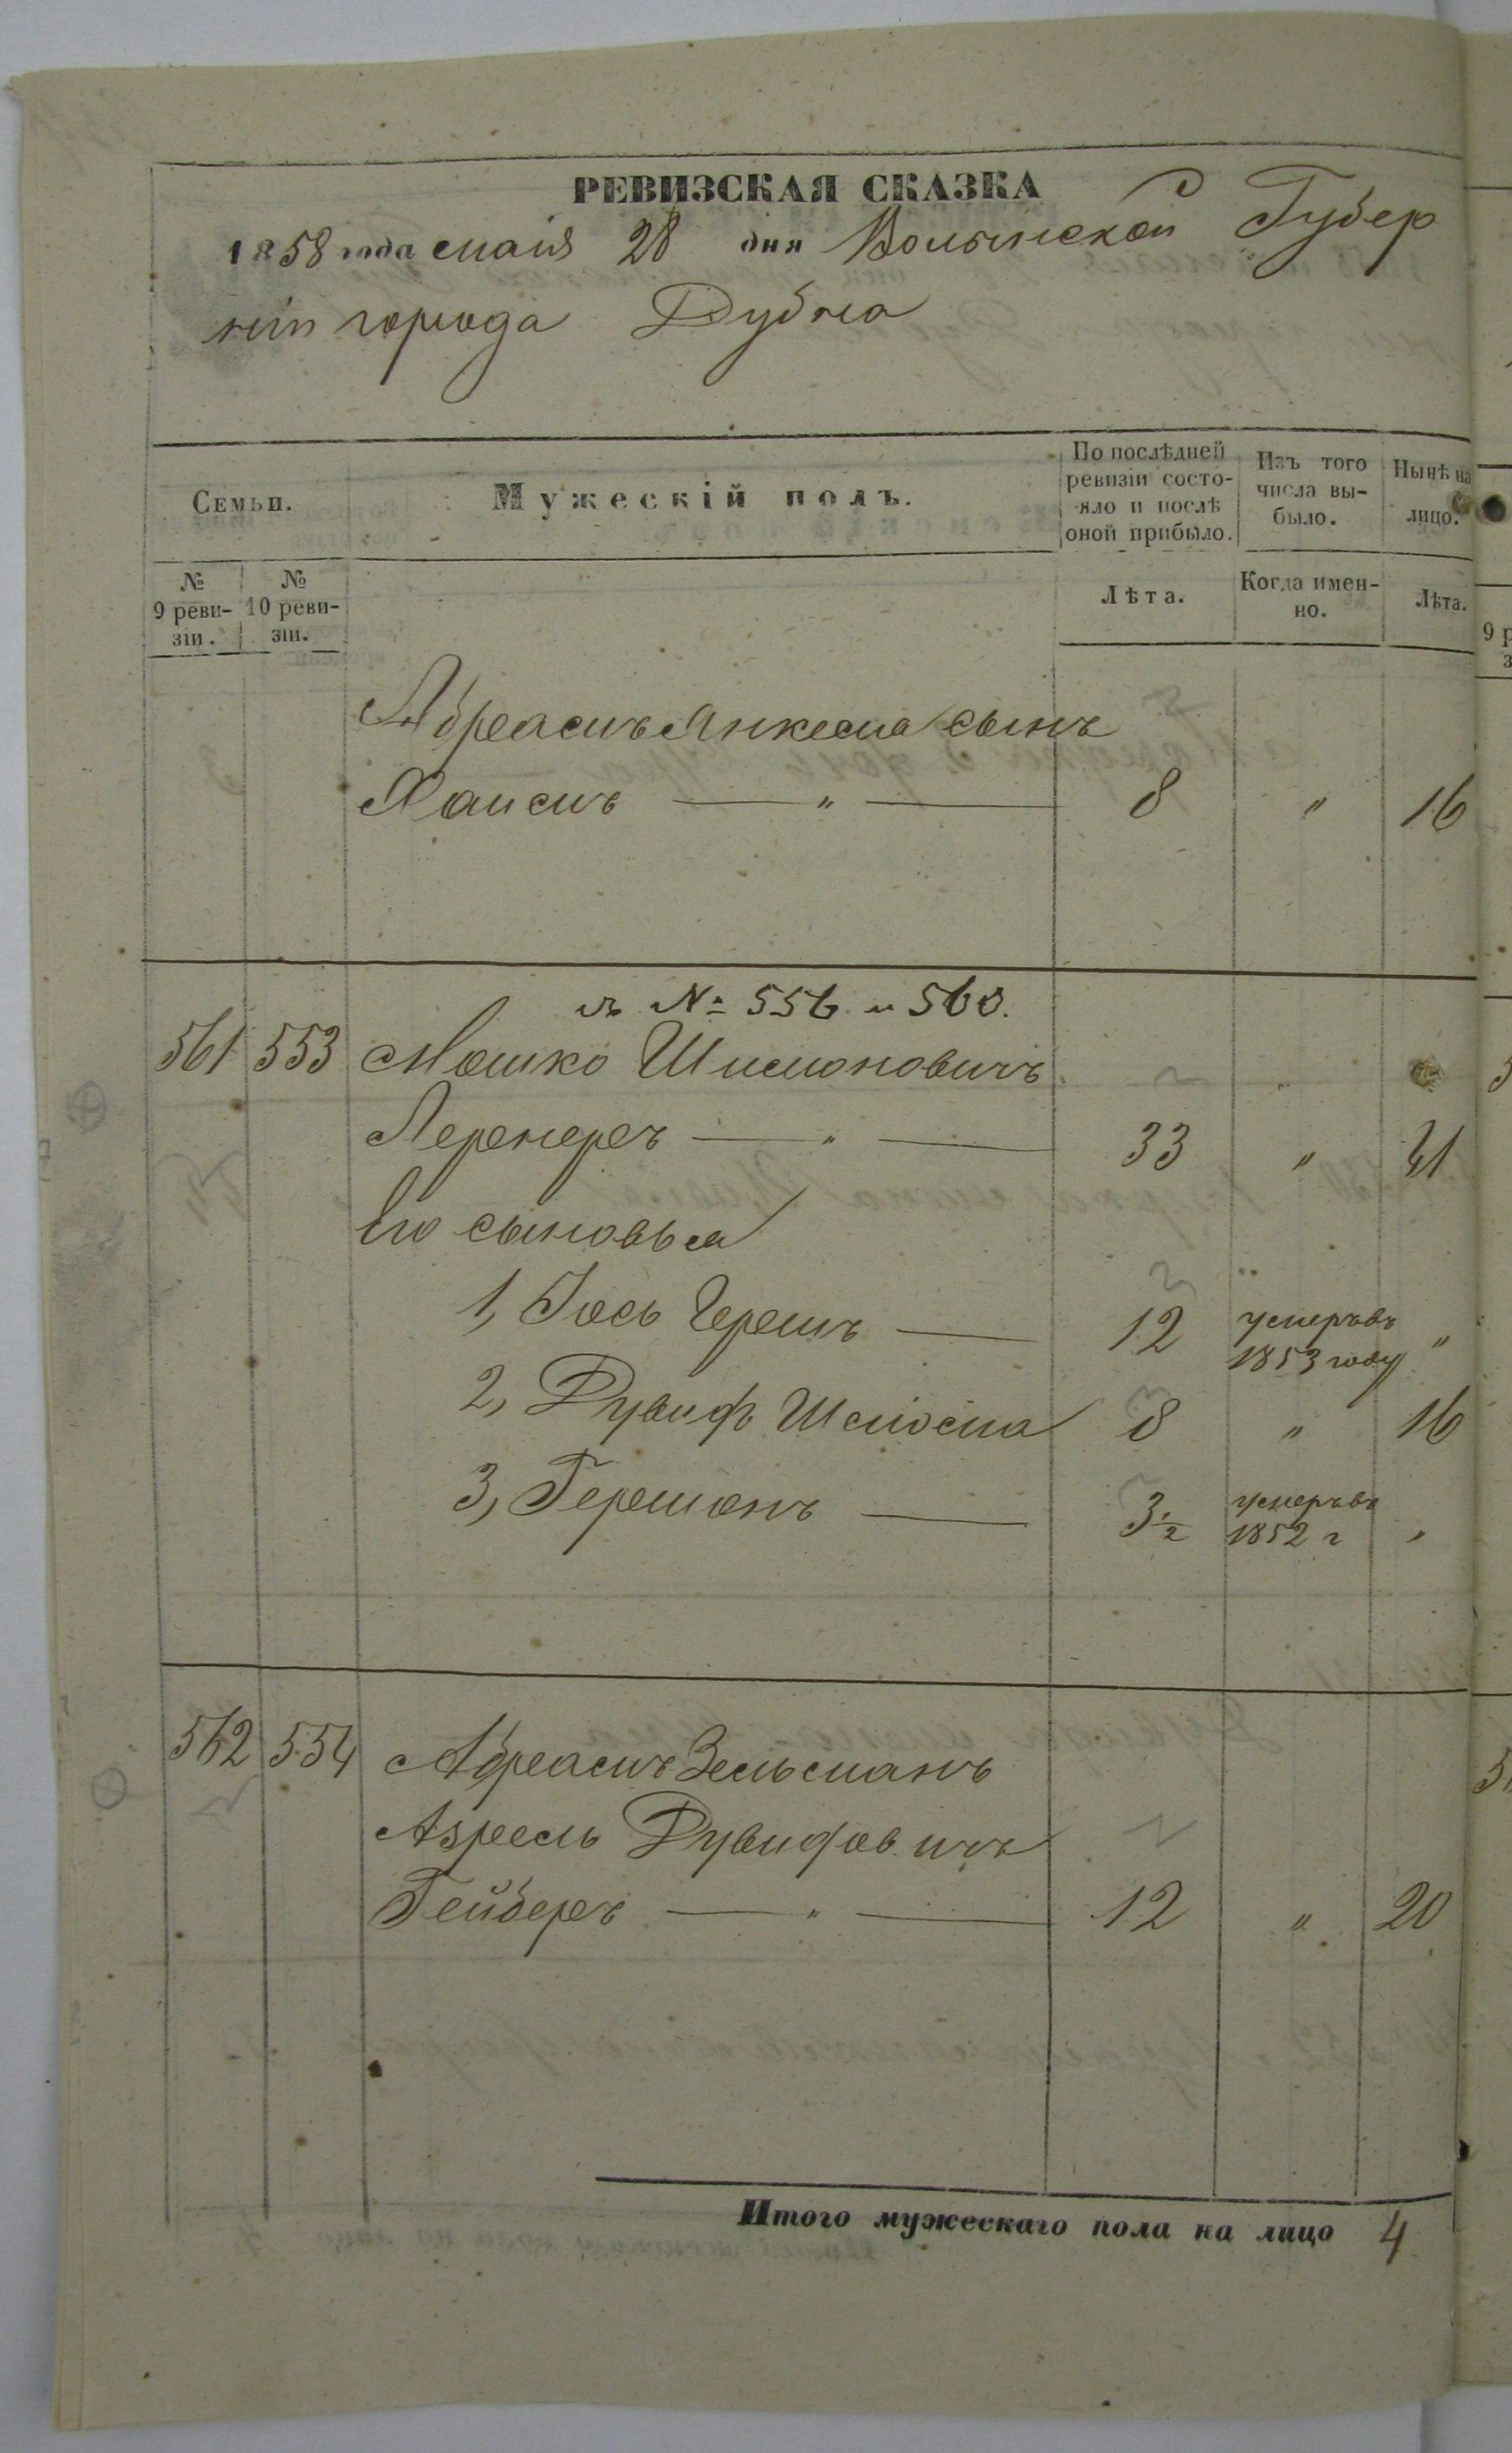 РЕВИЗСКАЯ СКАЗКА
1858 года маія 28 дня Волынской Губер
ніи города Дубна
Семьи.
Мужескій полъ.
По послѣдней ревизіи состояло и послѣ оной прибыло.
Изъ того числа выбыло.
Нынѣ на лицо.
№ 9 ревизіи.
№ 10 ревизіи.
Лѣта.
Когда именно.
Лѣта.
Абрамъ Янкеля сынъ
Хаимъ — " — 8 " 16
къ № 556 и 560.
561 553 Мошко Шимоновичъ
Лернеръ — " — 33 " 41
Его сыновья
1, Іось Гершъ — 12 умеръ въ 1853 году "
2, Дувидъ Шлiома 8 " 16
3, Гершонъ — 3 1/2 умеръ въ 1852 г "
562 554 Абрамъ Зельманъ
Азрель Дувидовичъ
Гейберъ — " — 12 " 20
Итого мужескаго пола на лицо 4